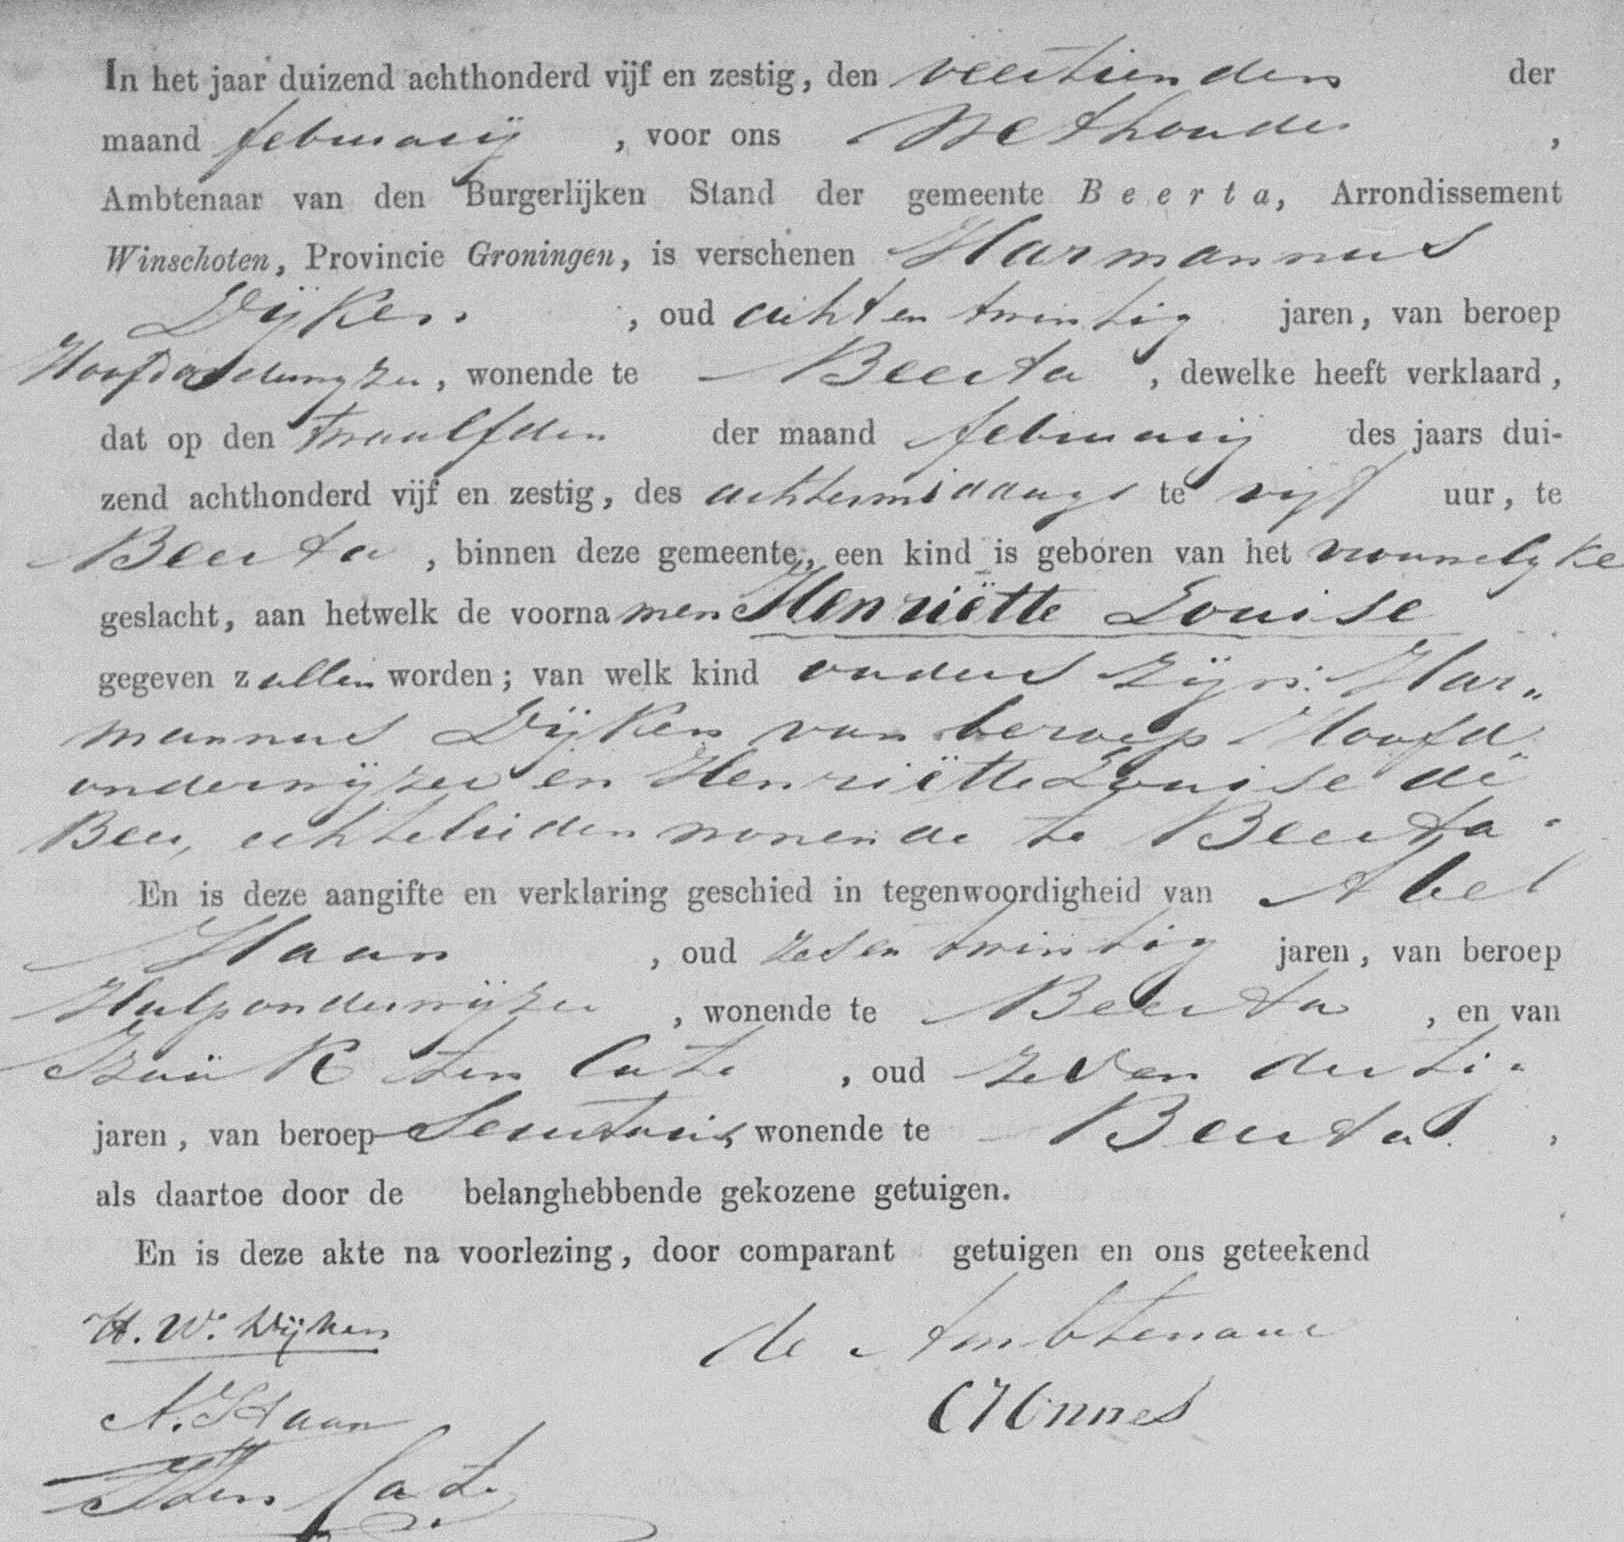 In het jaar duizend achthonderd vijf en zestig, den veertienden der
maand februarij , voor ons Wethouder ,
Ambtenaar van den Burgerlijken Stand der gemeente Beerta, Arrondissement
Winschoten, Provincie Groningen, is verschenen Harmannus
Dijken , oud achtentwintig jaren, van beroep
Hoofdonderwijzer, wonende te Beerta , dewelke heeft verklaard,
dat op den twaalfden der maand februarij des jaars dui-
zend achthonderd vijf en zestig, des achtermiddags te vijf uur, te
Beerta , binnen deze gemeente, een kind is geboren van het vrouwelijke
geslacht, aan hetwelk de voornamen Henriëtte Louise
gegeven zullen worden; van welk kind ouders zijn: Har„
mannus Dijken van beroep Hoofd
onderwijzer en Henriëtte Louise de
Beer, echtelieden wonende te Beerta.
En is deze aangifte en verklaring geschied in tegenwoordigheid van Abel
Haan , oud zesentwintig jaren, van beroep
Hulponderwijzer , wonende te Beerta , en van
Izaäk ten Cate , oud zevendertig
jaren, van beroep Secretaris, wonende te Beerta ,
als daartoe door de belanghebbende gekozene getuigen.
En is deze akte na voorlezing, door comparant getuigen en ons geteekend
H. W. Dijken de Ambtenaar
A. Haan
ITen Cate